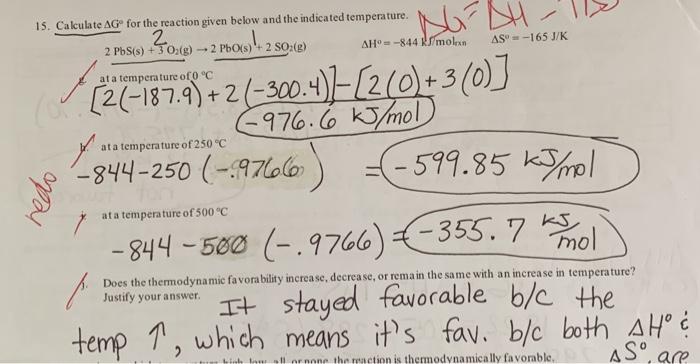 ΔG = ΔH - TΔS
15. Calculate ΔG° for the reaction given below and the indicated temperature.
2 1
2 PbS(s) + 3 O₂(g) → 2 PbO(s) + 2 SO₂(g) ΔH° = −844 kJ/molrxn ΔS° = −165 J/K
at a temperature of 0 °C
[2(-187.9)+2(-300.4)]-[2(0)+3(0)]
-976.6 kJ/mol
redo
at a temperature of 250 °C
-844-250(-.9766) = -599.85 kJ/mol
at a temperature of 500 °C
-844-500(-.9766) = -355.7 kJ/mol
Does the thermodynamic favorability increase, decrease, or remain the same with an increase in temperature?
Justify your answer.
It stayed favorable b/c the
temp ↑, which means it's fav. b/c both ΔH° &
ΔS° are
all or none the reaction is thermodynamically favorable.